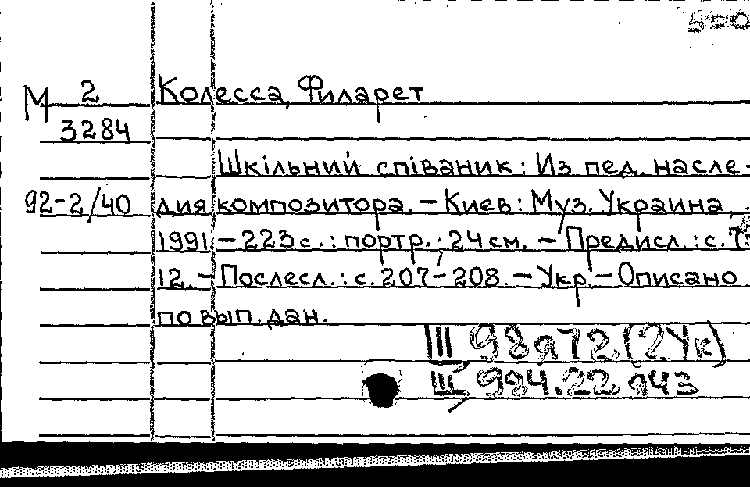 М 2 Колесса, Филарет
3284
Шкільний співаник: Из пед. насле-
92-2/40 дия композитора. – Киев: Муз. Украина,
1991. – 223 с.: портр.; 24 см. – Предисл.: с.
12. – Послесл.: с. 207-208. – Укр. – Описано
по вып. дан.
Ш 98я72(2Ук)
Щ 994.22 я43